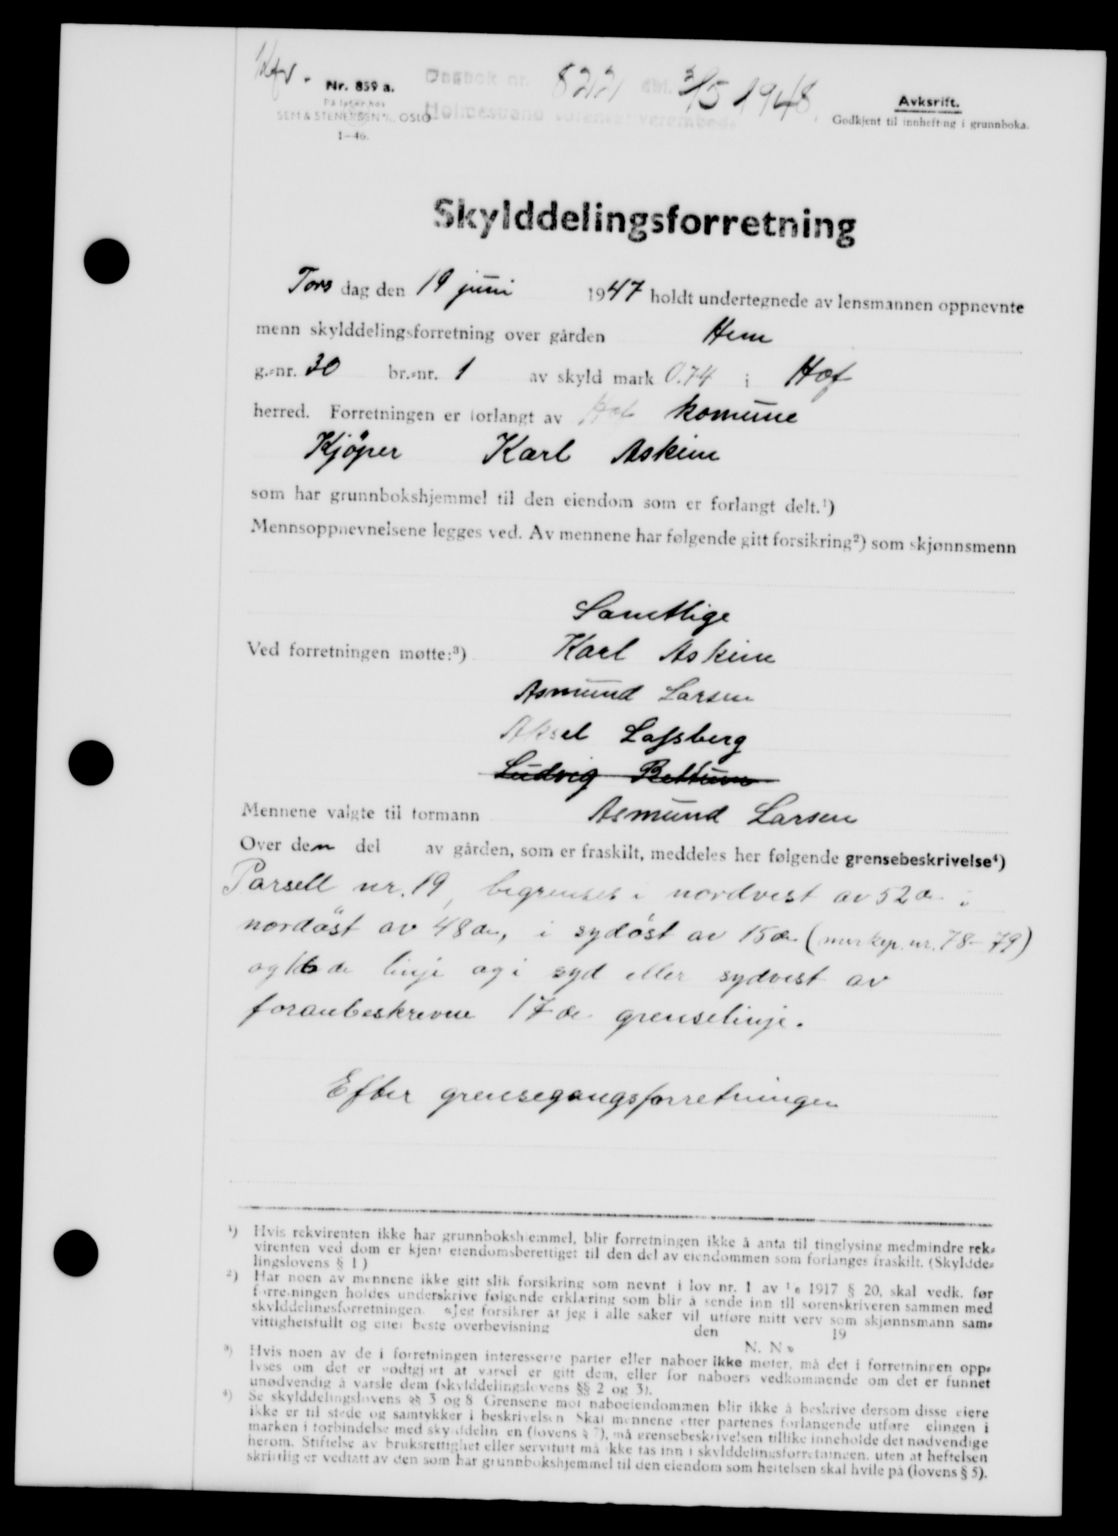 Nr. 859 a.
Fåes hos
SEM & STENERSEN A/S, OSLO
1-46.
Dagbok nr. 822 3/5 1948.
Holmestrand sorenskriverembede
Avksrift.
Godkjent til innhefting i grunnboka.
Skylddelingsforretning
Tors dag den 19 juni 1947 holdt undertegnede av lensmannen oppnevnte
menn skylddelingsforretning over gården Hem
g.-nr. 30 br.-nr. 1 av skyld mark 0.74 i Hof
herred. Forretningen er forlangt av Hof komune
Kjøper Karl Askim
som har grunnbokshjemmel til den eiendom som er forlangt delt.¹)
Mennsoppnevnelsene legges ved. Av mennene har følgende gitt forsikring²) som skjønnsmenn
Samtlige
Ved forretningen møtte:³) Karl Askim
Asmund Larsen
Aksel Lofsberg
Ludvig Bettum
Mennene valgte til formann Asmund Larsen
Over den del av gården, som er fraskilt, meddeles her følgende grensebeskrivelse⁴)
Parsell nr. 19, begrenses i nordvest av 52 de i
nordøst av 48 de, i sydøst av 15 de (merkep. nr. 78-79)
og 16 de linje og i syd eller sydvest av
foranbeskrevne 17 de grenselinje.
Efter grensegangsforretningen
¹) Hvis rekvirenten ikke har grunnbokshjemmel, blir forretningen ikke å anta til tinglysing medmindre rek-
virenten ved dom er kjent eiendomsberettiget til den del av eiendommen som forlanges fraskilt. (Skyldde-
lingslovens § 1)
²) Har noen av mennene ikke gitt slik forsikring som nevnt i lov nr. 1 av 1/6 1917 § 20, skal vedk. før
forretningen holdes underskrive følgende erklæring som blir å sende inn til sorenskriveren sammen med
skylddelingsforretningen. «Jeg forsikrer at jeg i alle saker vil utføre mitt verv som skjønnsmann sam-
vittighetsfullt og etter beste overbevisning
den 19
N. N.»
³) Hvis noen av de i forretningen interesserte parter eller naboer ikke møter, må det i forretningen opp-
lyses om det er godtgjort at varsel er gitt dem, eller for naboers vedkommende om det er funnet
unødvendig å varsle dem (skylddelingslovens §§ 2 og 3).
⁴) Se skylddelingslovens §§ 3 og 8. Grensene mot naboeiendommen blir ikke å beskrive dersom disse eiere
ikke er til stede og samtykker i beskrivelsen. Skal mennene etter partenes forlangende utføre delingen i
marken i forbindelse med skylddelingen (lovens § 7), må grensebeskrivelsen tillike inneholde det nødvendige
herom. Stiftelse av bruksrettighet eller servitutt må ikke tas inn i skylddelingsforretningen, uten at heftelsen
skriftlig er vedtatt av den som har grunnbokshjemmel til den eiendom som heftelsen skal hvile på (lovens § 5).